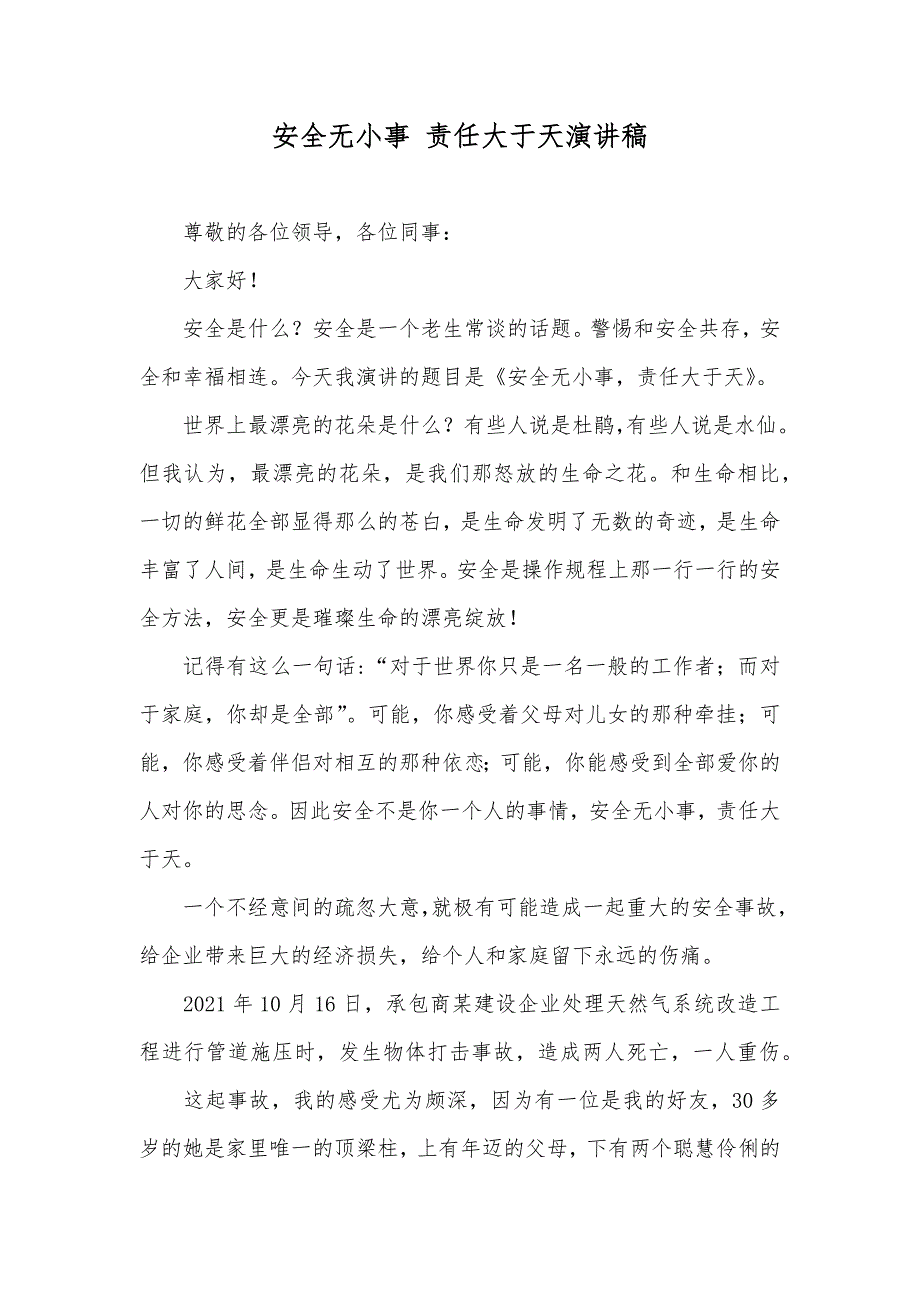 安全无小事 责任大于天演讲稿
尊敬的各位领导，各位同事：
大家好！
安全是什么？安全是一个老生常谈的话题。警惕和安全共存，安
全和幸福相连。今天我演讲的题目是《安全无小事，责任大于天》。
世界上最漂亮的花朵是什么？有些人说是杜鹃，有些人说是水仙。
但我认为，最漂亮的花朵，是我们那怒放的生命之花。和生命相比，
一切的鲜花全部显得那么的苍白，是生命发明了无数的奇迹，是生命
丰富了人间，是生命生动了世界。安全是操作规程上那一行一行的安
全方法，安全更是璀璨生命的漂亮绽放！
记得有这么一句话：“对于世界你只是一名一般的工作者；而对
于家庭，你却是全部”。可能，你感受着父母对儿女的那种牵挂；可
能，你感受着伴侣对相互的那种依恋；可能，你能感受到全部爱你的
人对你的思念。因此安全不是你一个人的事情，安全无小事，责任大
于天。
一个不经意间的疏忽大意，就极有可能造成一起重大的安全事故，
给企业带来巨大的经济损失，给个人和家庭留下永远的伤痛。
2021年10月16日，承包商某建设企业处理天然气系统改造工
程进行管道施压时，发生物体打击事故，造成两人死亡，一人重伤。
这起事故，我的感受尤为颇深，因为有一位是我的好友，30多
岁的她是家里唯一的顶梁柱，上有年迈的父母，下有两个聪慧伶俐的